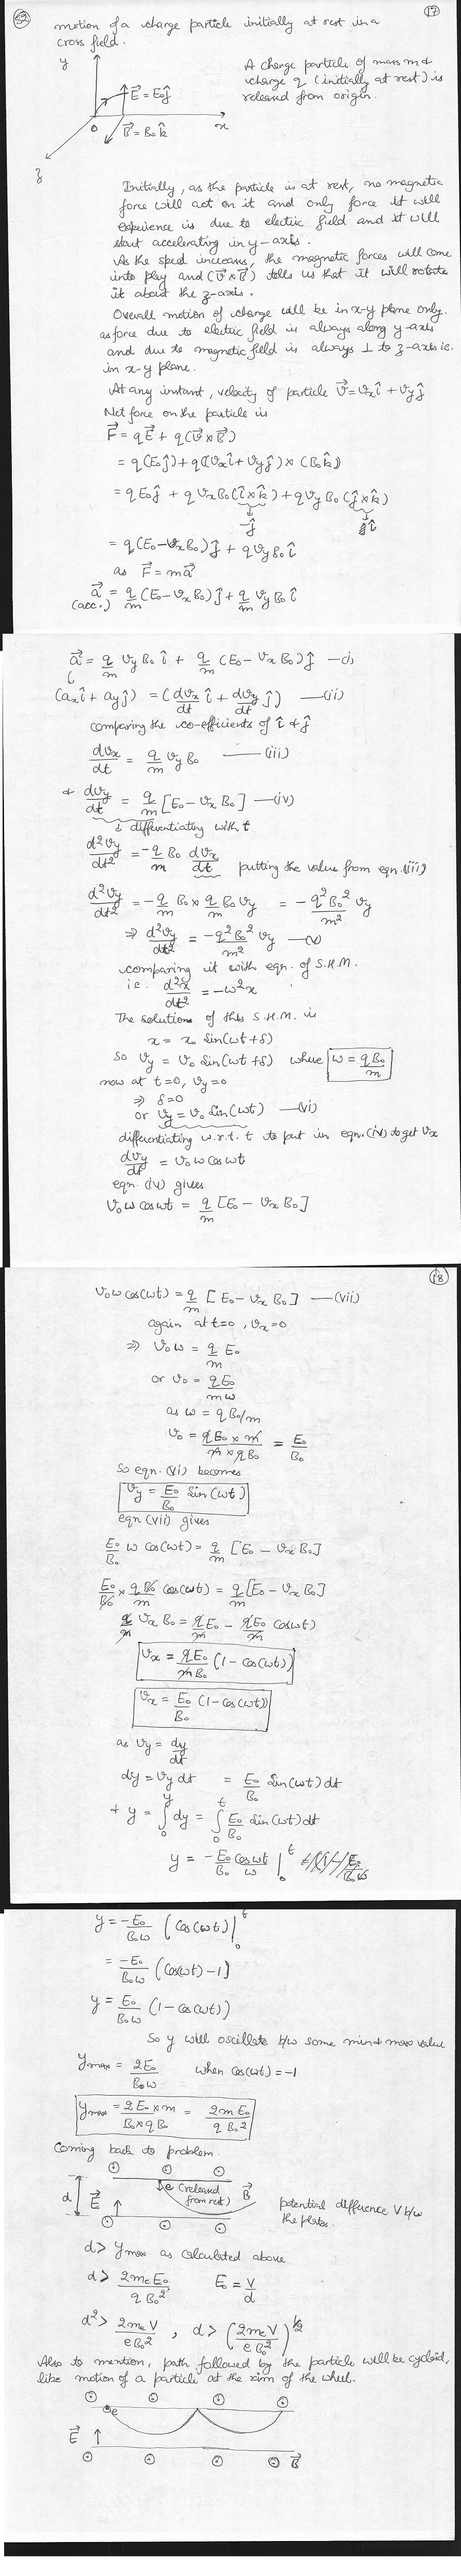 59
17
motion of a charge particle initially at rest in a
cross field.
y
A charge particle of mass m &
charge q (initially at rest) is
released from origin.
E⃗ = E₀ĵ
O
x
B⃗ = B₀k̂
z
Initially, as the particle is at rest, no magnetic
force will act on it and only force it will
experience is due to electric field and it will
start accelerating in y-axis.
As the speed increases, the magnetic forces will come
into play and (v⃗ x B⃗) tells us that it will rotate
it about the z-axis.
Overall motion of charge will be in x-y plane only.
as force due to electric field is always along y-axis
and due to magnetic field is always ⊥ to z-axis i.e.
in x-y plane.
At any instant, velocity of particle v⃗ = vₓî + v_yĵ
Net force on the particle is
F⃗ = qE⃗ + q(v⃗ x B⃗)
= q(E₀ĵ) + q((vₓî + v_yĵ) x (B₀k̂))
= qE₀ĵ + qvₓB₀(î x k̂) + qv_yB₀(ĵ x k̂)
-ĵ
î
= q(E₀ - vₓB₀)ĵ + qv_yB₀î
as F⃗ = ma⃗
a⃗ = q/m (E₀ - vₓB₀)ĵ + q/m v_yB₀î
(acc.)
a⃗ = q/m v_yB₀î + q/m (E₀ - vₓB₀)ĵ —(i)
(aₓî + a_yĵ) = (dvₓ/dt î + dv_y/dt ĵ) —(ii)
comparing the co-efficients of î & ĵ
dvₓ/dt = q/m v_yB₀ —(iii)
& dv_y/dt = q/m [E₀ - vₓB₀] —(iv)
↓ differentiating with t
d²v_y/dt² = -q/m B₀ dvₓ/dt putting the value from eqn.(iii)
d²v_y/dt² = -q/m B₀ x q/m B₀v_y = -q²B₀²/m² v_y
⇒ d²v_y/dt² = -q²B₀²/m² v_y —(v)
comparing it with eqn. of S.H.M.
i.e. d²x/dt² = -ω²x
The solution of this S.H.M. is
x = x₀ sin(ωt+δ)
So v_y = v₀ sin(ωt+δ) where ω = qB₀/m
now at t=0, v_y=0
⇒ δ=0
or v_y = v₀ sin(ωt) —(vi)
differentiating w.r.t. t to put in eqn.(iv) to get vₓ
dv_y/dt = v₀ω cosωt
eqn. (iv) gives
v₀ω cosωt = q/m [E₀ - vₓB₀]
18
v₀ω cos(ωt) = q/m [E₀ - vₓB₀] —(vii)
again at t=0, vₓ=0
⇒ v₀ω = q/m E₀
or v₀ = qE₀/mω
as ω = qB₀/m
v₀ = qE₀ x m/m x qB₀ = E₀/B₀
So eqn. (vi) becomes
v_y = E₀/B₀ sin(ωt)
eqn (vii) gives
E₀/B₀ ω cos(ωt) = q/m [E₀ - vₓB₀]
E₀/B₀ x qB₀/m cos(ωt) = q/m [E₀ - vₓB₀]
q/m vₓB₀ = qE₀/m - qE₀/m cos(ωt)
vₓ = qE₀/mB₀ (1-cos(ωt))
vₓ = E₀/B₀ (1-cos(ωt))
as v_y = dy/dt
dy = v_y dt = E₀/B₀ sin(ωt) dt
& y = ∫₀ʸ dy = ∫₀ᵗ E₀/B₀ sin(ωt) dt
y = -E₀/B₀ cosωt/ω |₀ᵗ
y = -E₀/B₀ω (cos(ωt))|₀ᵗ
= -E₀/B₀ω (cos(ωt)-1)
y = E₀/B₀ω (1-cos(ωt))
So y will oscillate b/w some min & max value
y_max = 2E₀/B₀ω when cos(ωt) = -1
y_max = 2E₀ x m/B₀ x qB₀ = 2mE₀/qB₀²
Coming back to problem.
e (released from rest)
B⃗
d
E⃗
potential difference V b/w
the plates.
d > y_max as calculated above
d > 2mₑE₀/qB₀² E₀ = V/d
d² > 2mₑV/eB₀² , d > (2mₑV/eB₀²)^1/2
Also to mention, path followed by the particle will be cycloid,
like motion of a particle at the rim of the wheel.
e
E⃗
B⃗